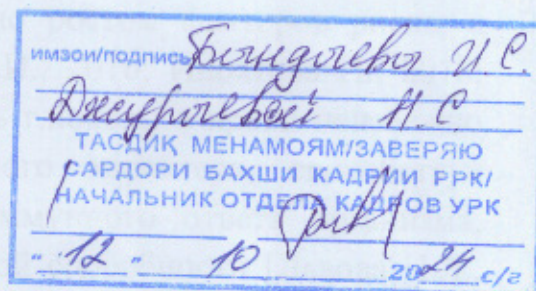 имзои/подпись Бандаевы И.С.
Джураевой Н.С.
ТАСДИҚ МЕНАМОЯМ/ЗАВЕРЯЮ
САРДОРИ БАХШИ КАДРИИ РРК/
НАЧАЛЬНИК ОТДЕЛА КАДРОВ УРК
"12" 10 2024 с/г